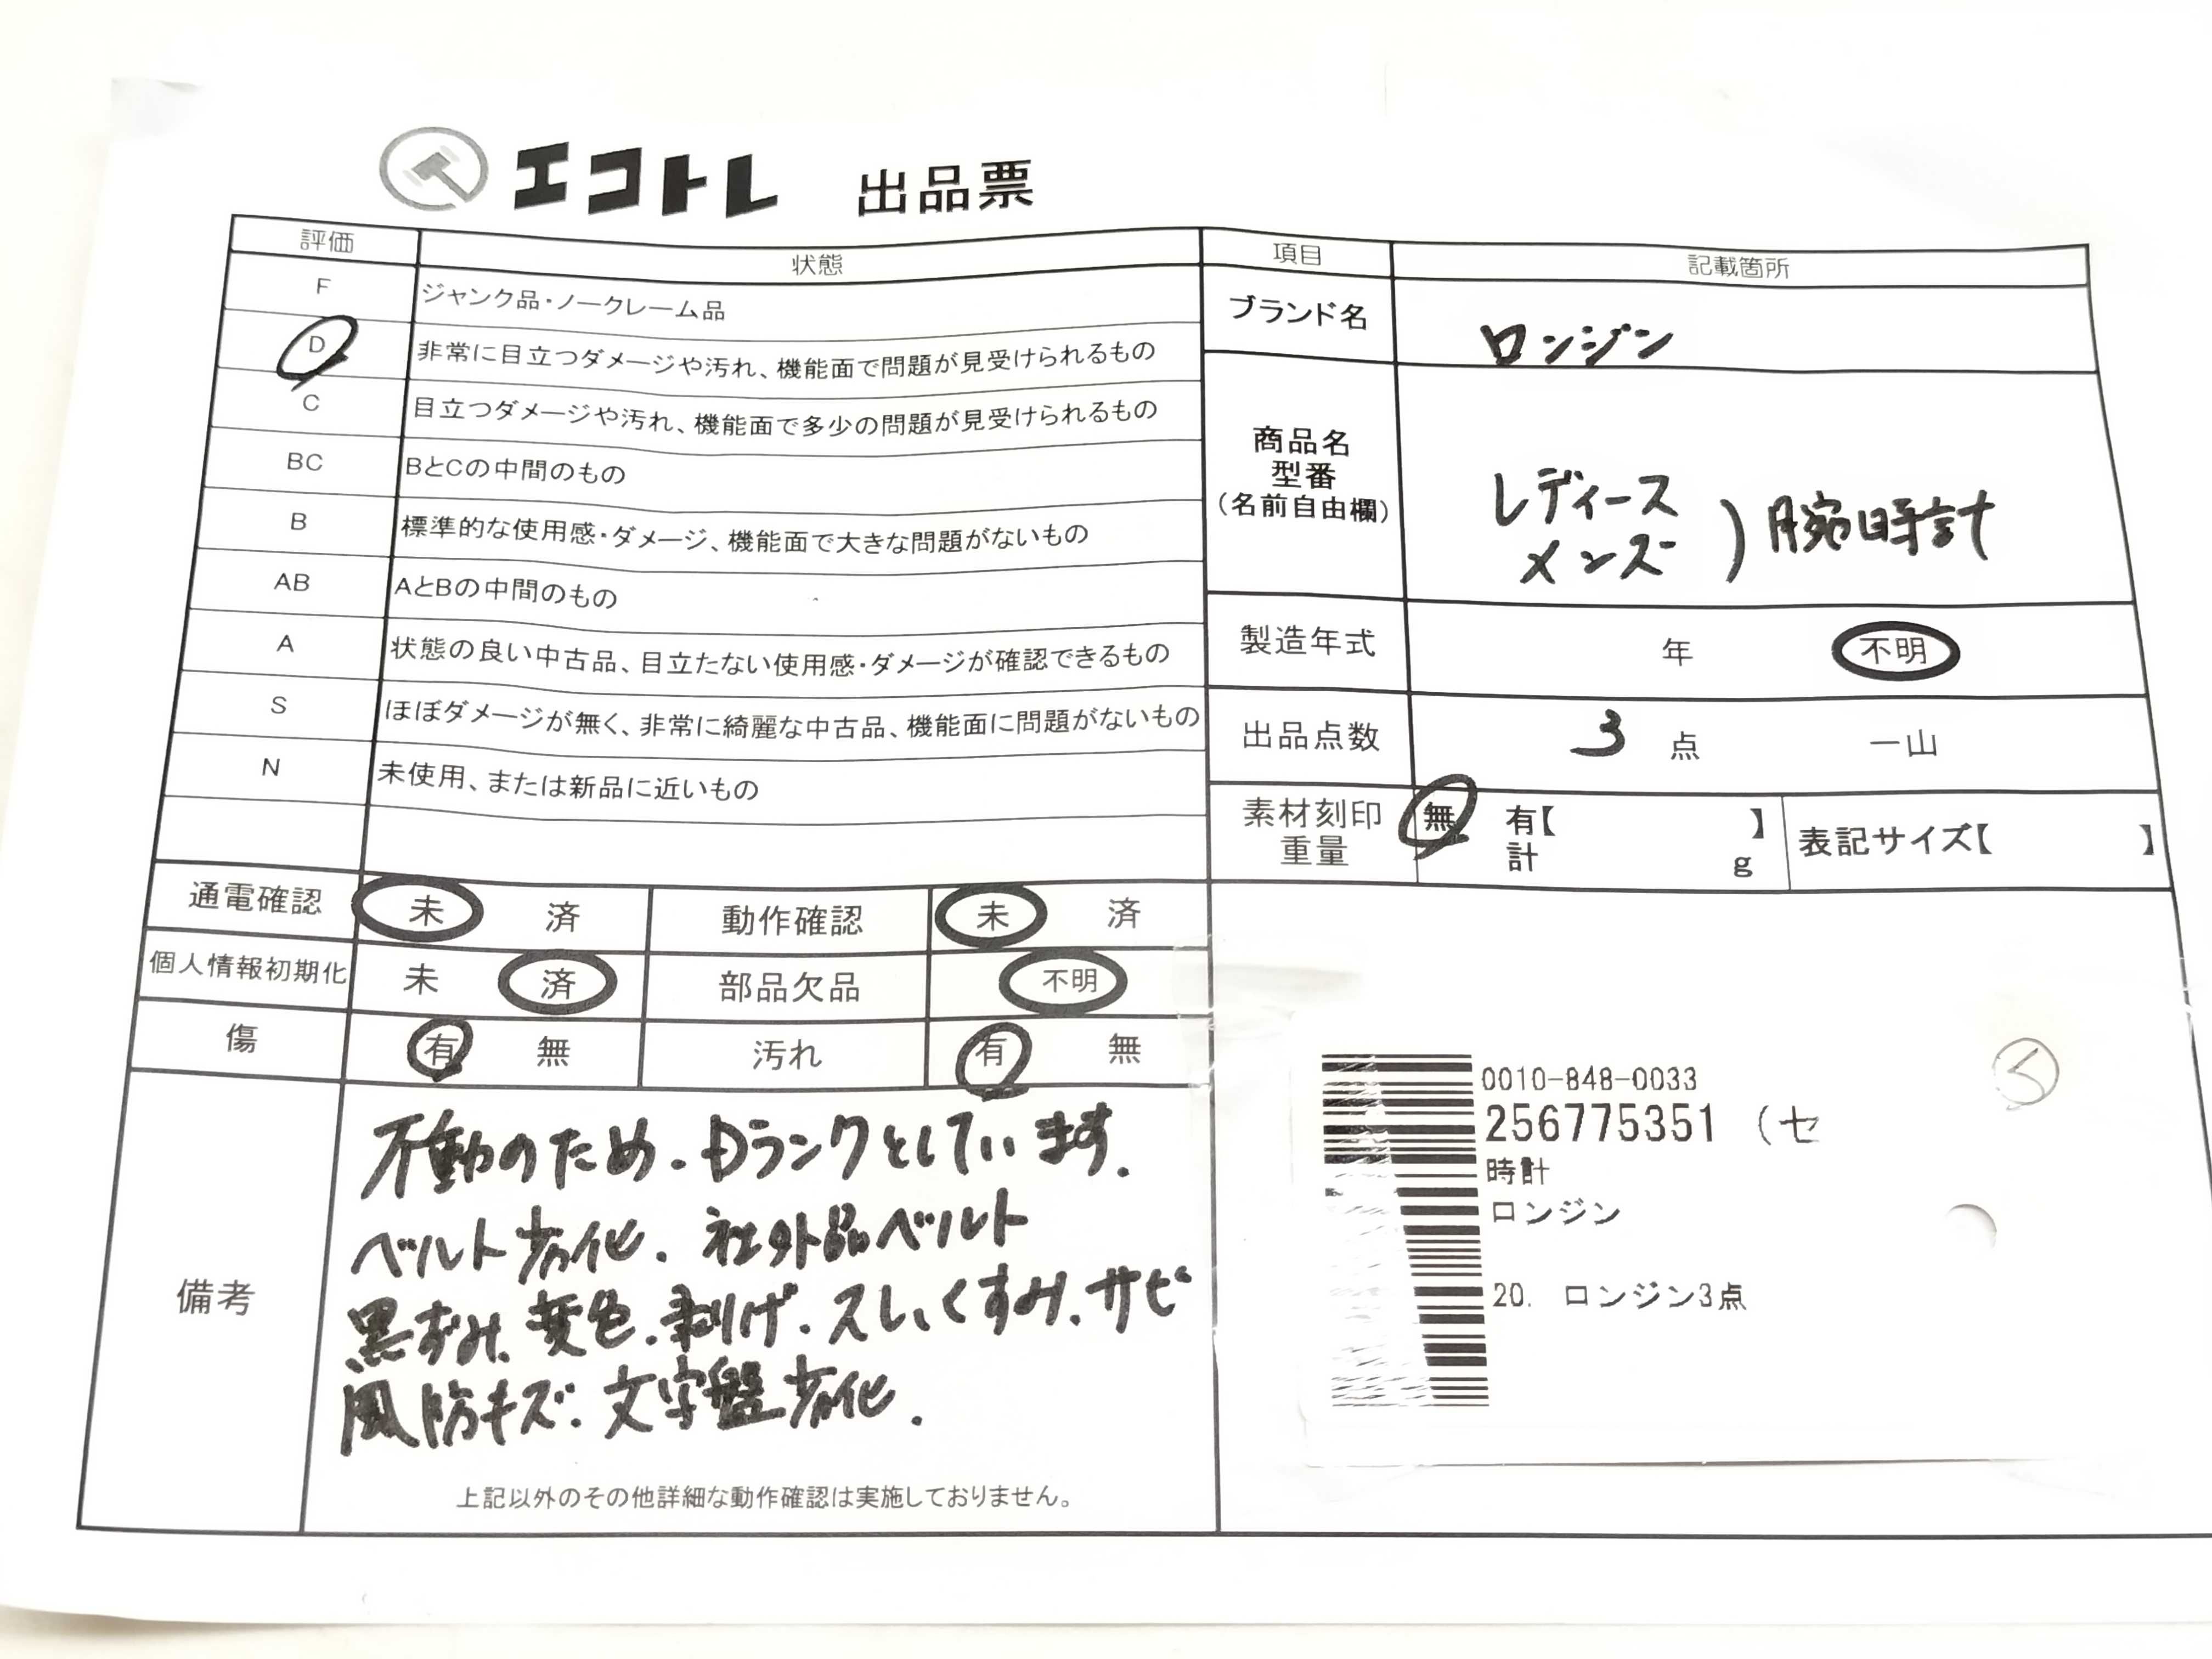 エコトレ 出品票
評価 状態
F ジャンク品・ノークレーム品
D 非常に目立つダメージや汚れ、機能面で問題が見受けられるもの
C 目立つダメージや汚れ、機能面で多少の問題が見受けられるもの
BC BとCの中間のもの
B 標準的な使用感・ダメージ、機能面で大きな問題がないもの
AB AとBの中間のもの
A 状態の良い中古品、目立たない使用感・ダメージが確認できるもの
S ほぼダメージが無く、非常に綺麗な中古品、機能面に問題がないもの
N 未使用、または新品に近いもの
項目 記載箇所
ブランド名 ロンジン
商品名
型番
(名前自由欄)
レディース
メンズ ) 腕時計
製造年式 年 不明
出品点数 3 点 一山
素材刻印 無 有【 】
重量 計 g
表記サイズ【 】
通電確認 未 済 動作確認 未 済
個人情報初期化 未 済 部品欠品 不明
傷 有 無 汚れ 有 無
備考
不動のため.Dランクとしています.
ベルト劣化.社外品ベルト
黒ずみ.変色.剥げ.スレ.くすみ.サビ
風防キズ.文字盤劣化.
上記以外のその他詳細な動作確認は実施しておりません。
0010-848-0033
256775351 (セ
時計
ロンジン
20. ロンジン3点